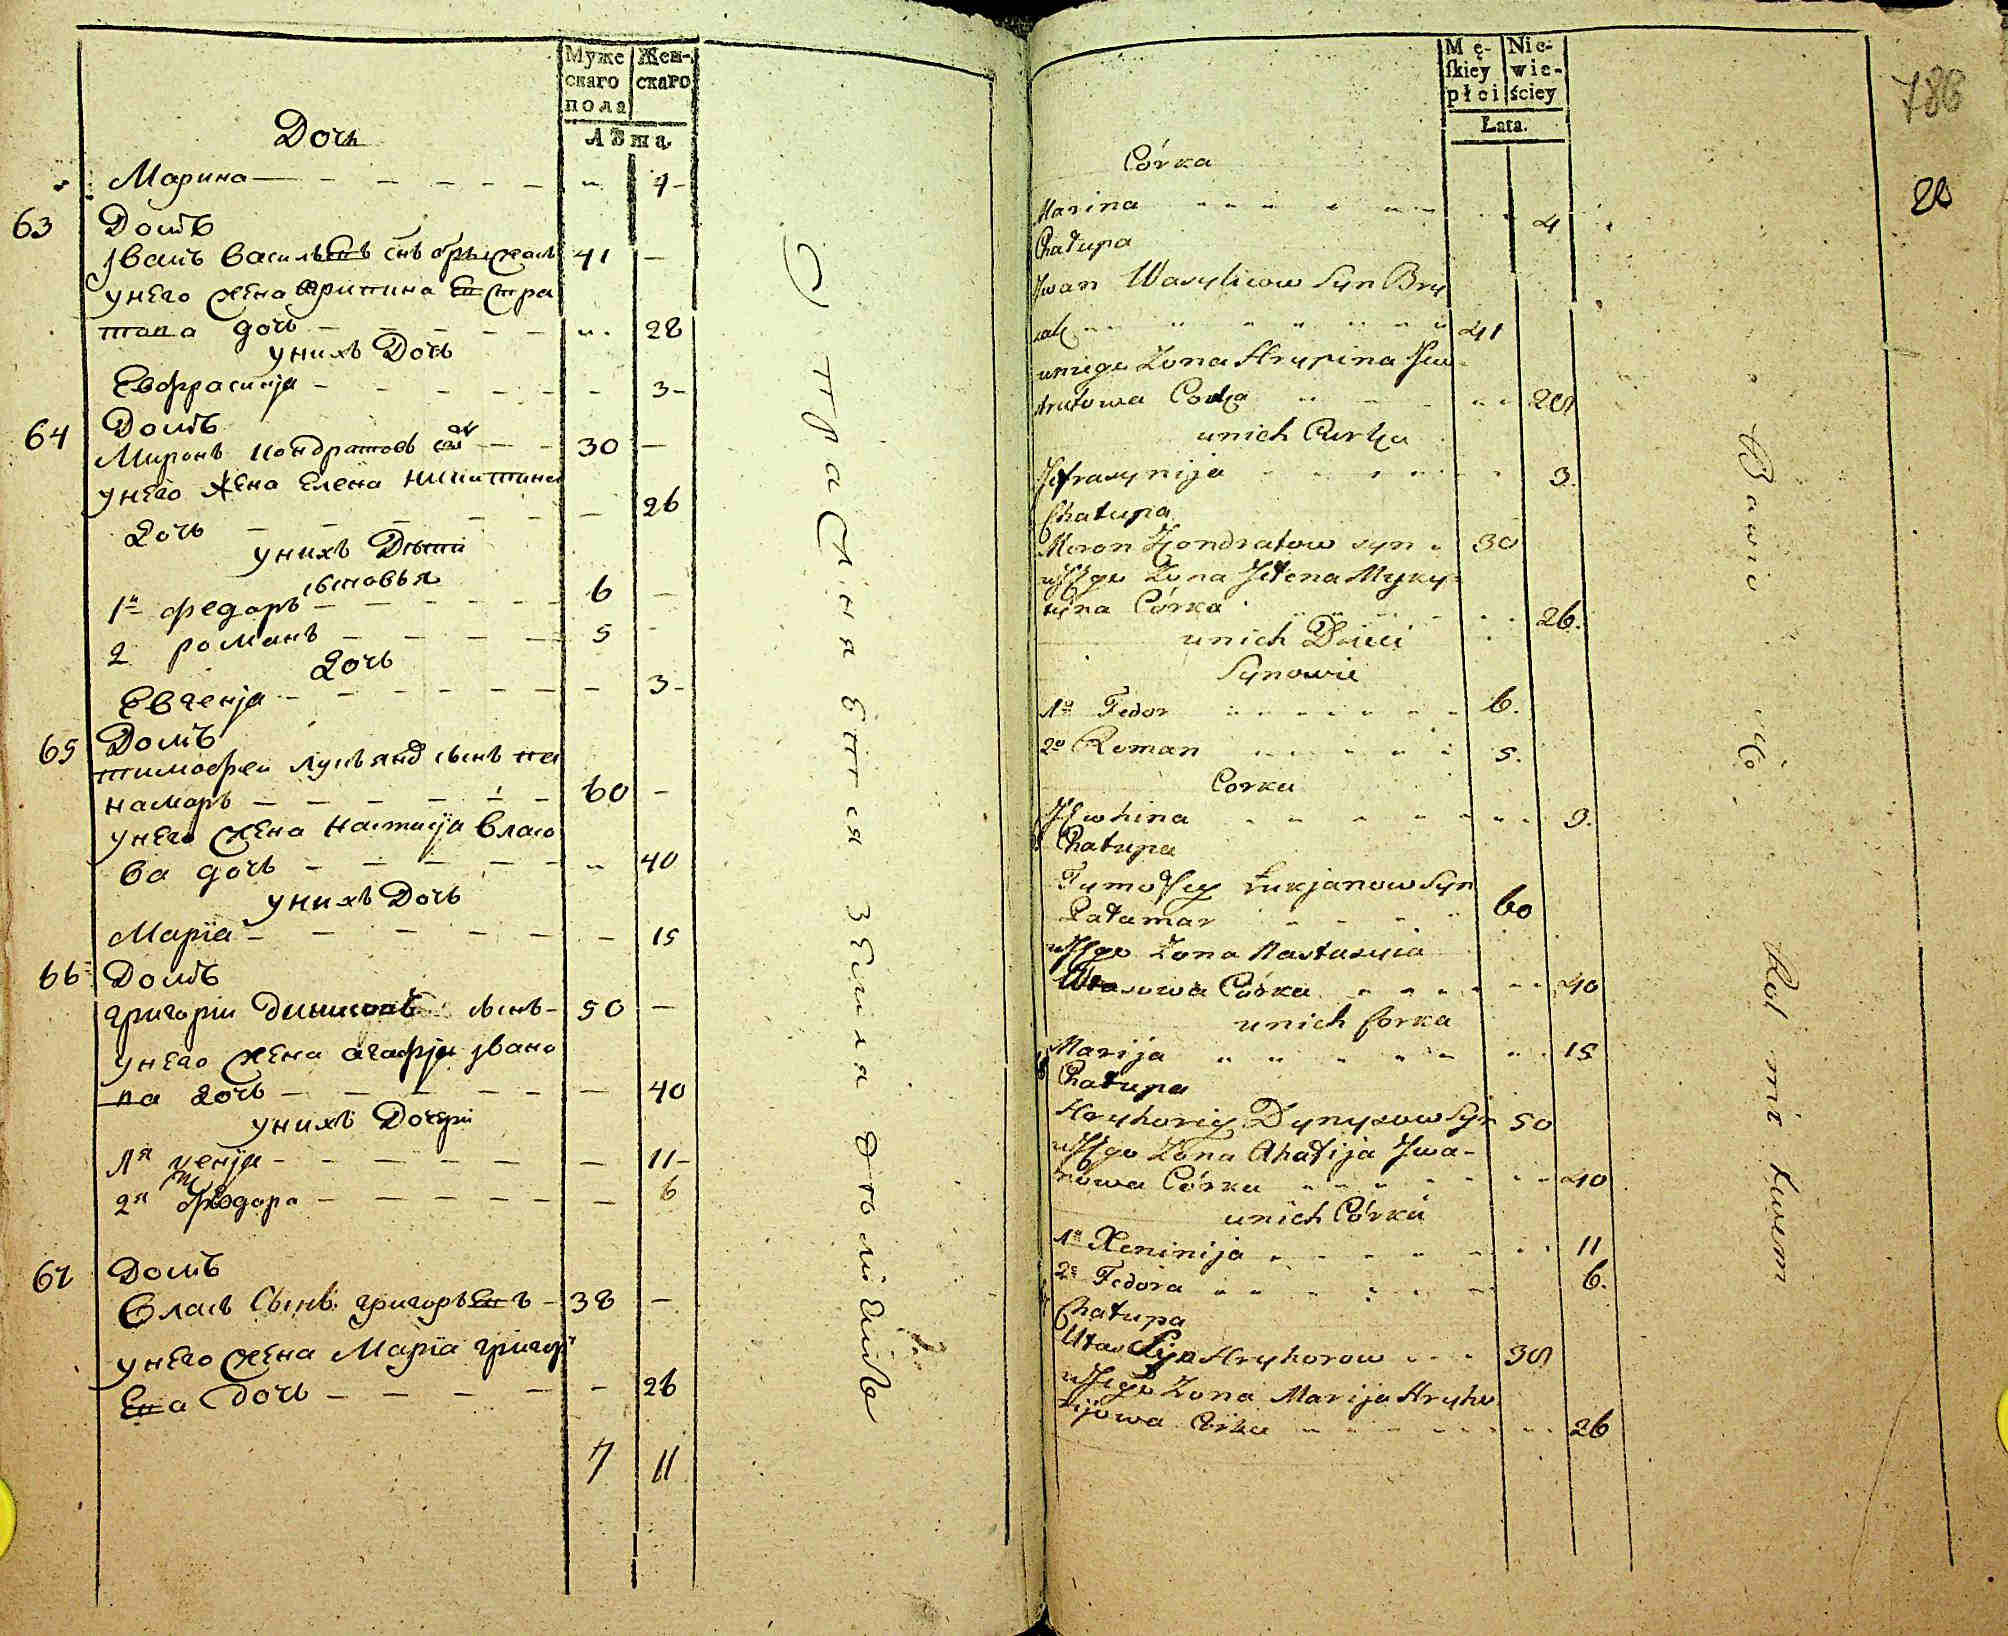 Муже
скаго
пола
Жен-
скаго
Лѣта
Дочь
Марина — — — — — — „ 4 -
63 Домъ
Иванъ Василѣевъ снъ брыжакъ 41 —
унего жена Христина Евстра
това дочь — — — — — „ 28
унихъ Дочь
Евфросинja — — — — — - 3 -
64 Домъ
Миронъ Кондратовъ снъ — — 30 —
унего жена Елена Никитина
Дочь — — — — — — 26
унихъ Дѣти
сыновья
1й федоръ — — — — — — 6 —
2 романъ — — — — — 5 -
Дочь
Евгенja — — — — — — - 3 -
65 Домъ
тимофеи Лукъянов сынъ па
намаръ — — — — — — 60 —
унего жена Настасja Власо
ва дочь — — — — — „ 40
унихъ Дочь
Марїа — — — — — — 15
66 Домъ
григорiи Денисовъ сынъ - 50 —
унего жена агафja Ивано
ва дочь — — — — — — 40
унихъ Дочери
1я ксенja — — — — — — 11 -
2я Феодора — — — — — — 6
67 Домъ
Власъ Сынъ григорѣевъ - 38 —
унего жена Марїа григор
Ева дочь — — — — — - 26
7 11
Странаентся земледѣлиемъ
Mę-
skiey
płci
Nie-
wie-
ściey
Łata.
788
20
Córka
Marina „ „ „ „ „ „ 4
Chałupa
Jwan Wasyliow Syn Bry
zak „ „ „ „ „ „ „ 41
uniego Zona Hrypina Jew
stratowa Corka „ „ „ 28
unich Curka
Jefrasynija „ „ „ „ „ 3.
Chałupa
Miron Kondratow syn „ 30
uJego Zona Jełena Myky-
tyna Córka „ „ „ „ 26.
unich Dzieci
Synowie
1o Fedor „ „ „ „ „ „ 6.
2o Roman „ „ „ „ „ 5.
Corka
Jewhina „ „ „ „ „ „ 3.
Chałupa
Tymofey Łukjanow Syn
Pałamar „ „ „ „ 60
uJego Zona Nastasyia
Własowa Córka „ „ „ „ 40
unich Corka
Marija „ „ „ „ „ „ 15
Chałupa
Hryhoriy Dynysow Syn 50
uJego Zona Ahafija Jwa-
nowa Córka „ „ „ „ „ 40
unich Córki
1a Xeninija „ „ „ „ „ 11
2a Fedora „ „ „ „ „ 6.
Chałupa
Włas Syn Hryhorow „ „ 38
uJego Zona Marija Hryho
rijowa Córka „ „ „ „ „ 26
Bawio się Rolnictwem